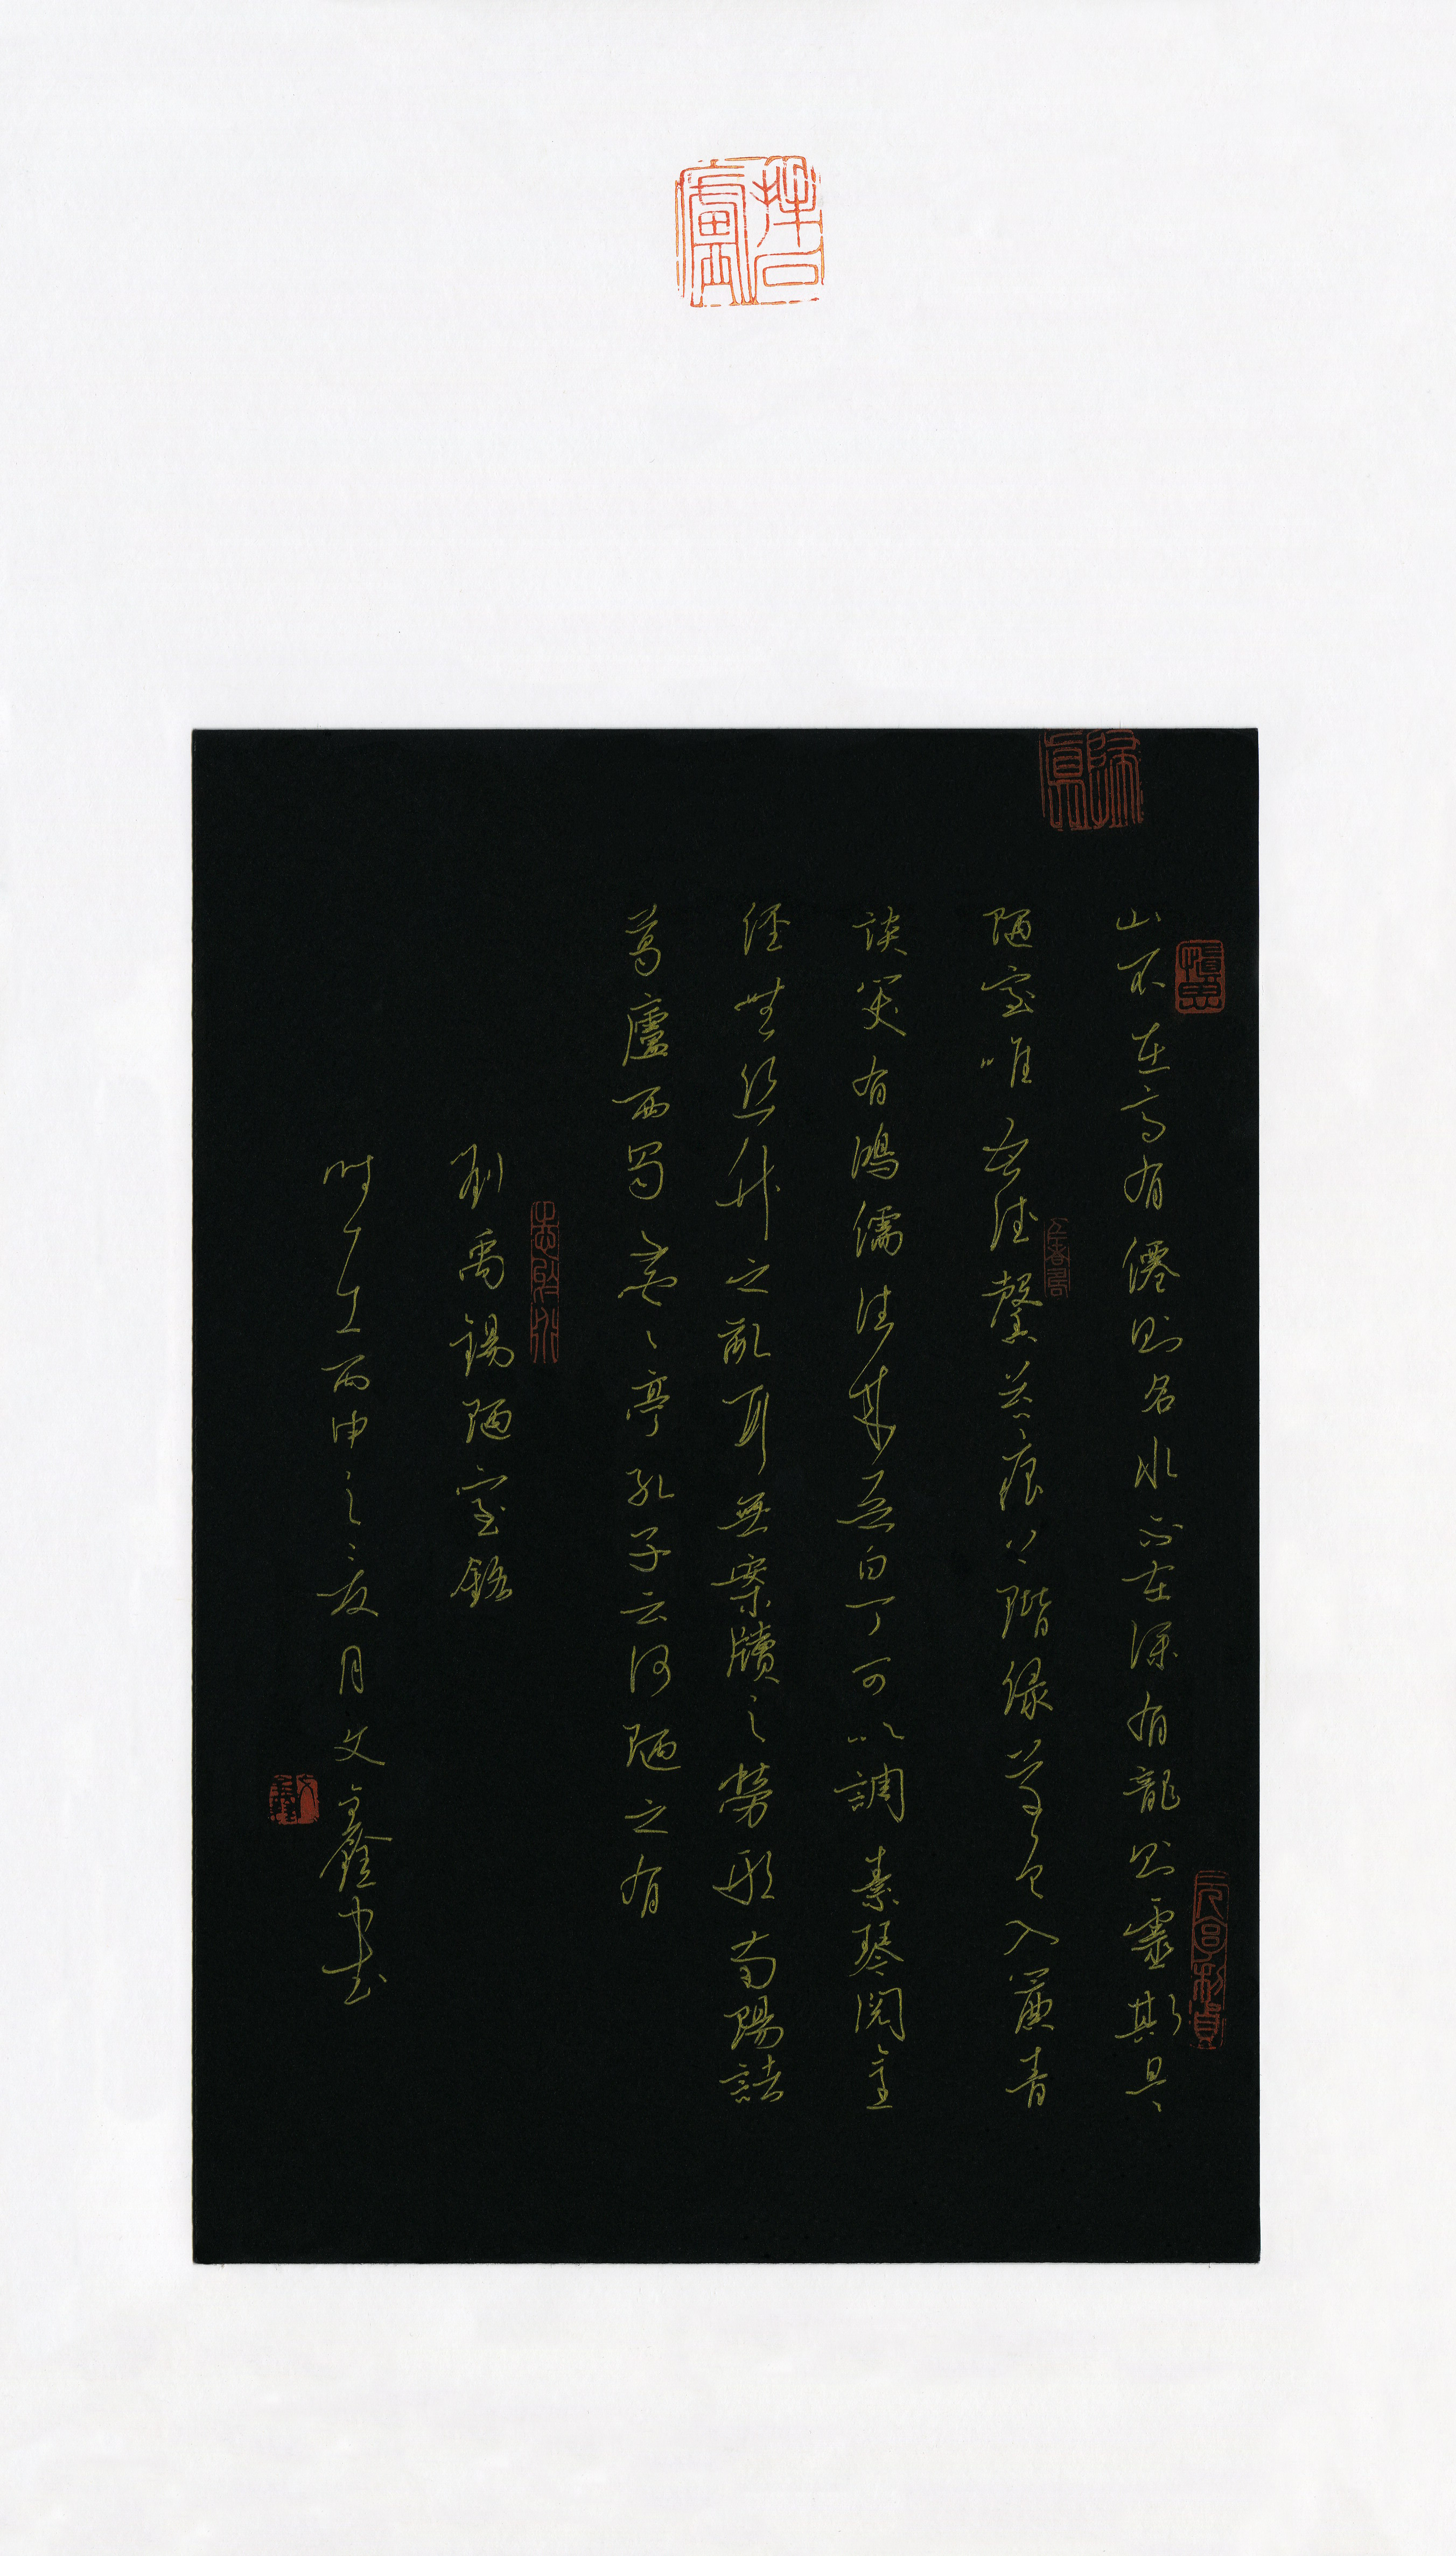 山不在高有僊則名水不在深有龍則靈斯是
陋室唯吾德馨苔痕上階緑草色入簾青
談笑有鴻儒往來無白丁可以調素琴閱金
經無絲竹之亂耳無案牘之勞形南陽諸
葛廬西蜀子雲亭孔子云何陋之有
劉禹錫陋室銘
時在丙申之夏月文鑫書
元亨利貞